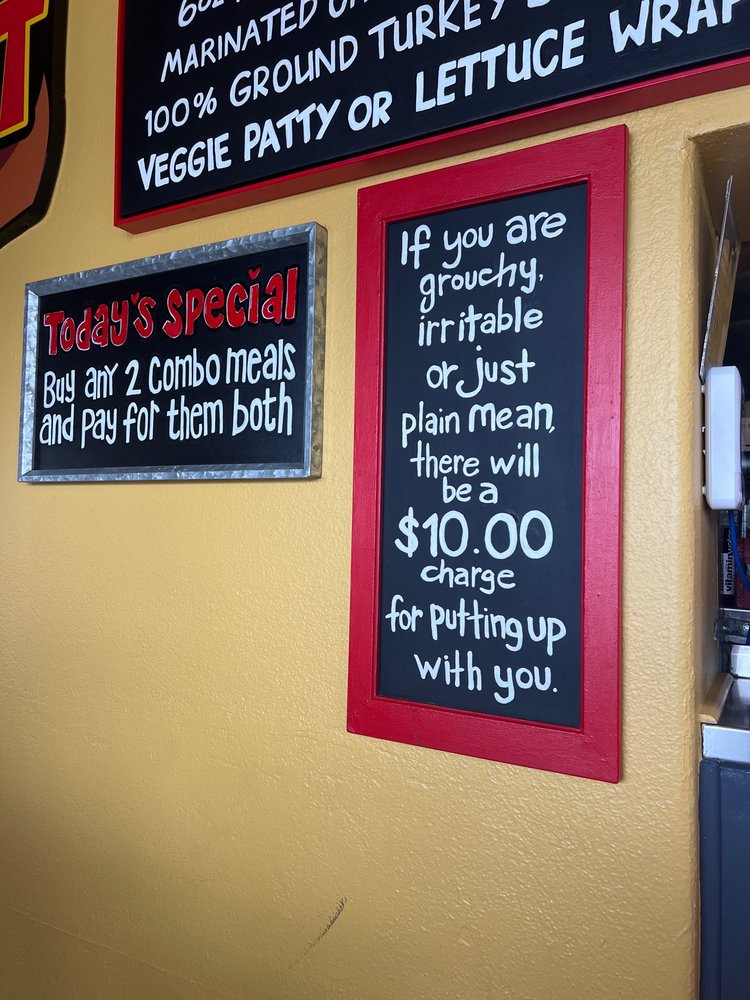 MARINATED
100% GROUND TURKEY
VEGGIE PATTY OR LETTUCE WRAP
Today's Special
Buy any 2 Combo meals
and pay for them both
If you are
grouchy,
irritable
or just
plain mean,
there will
be a
$10.00
charge
for putting up
with you.